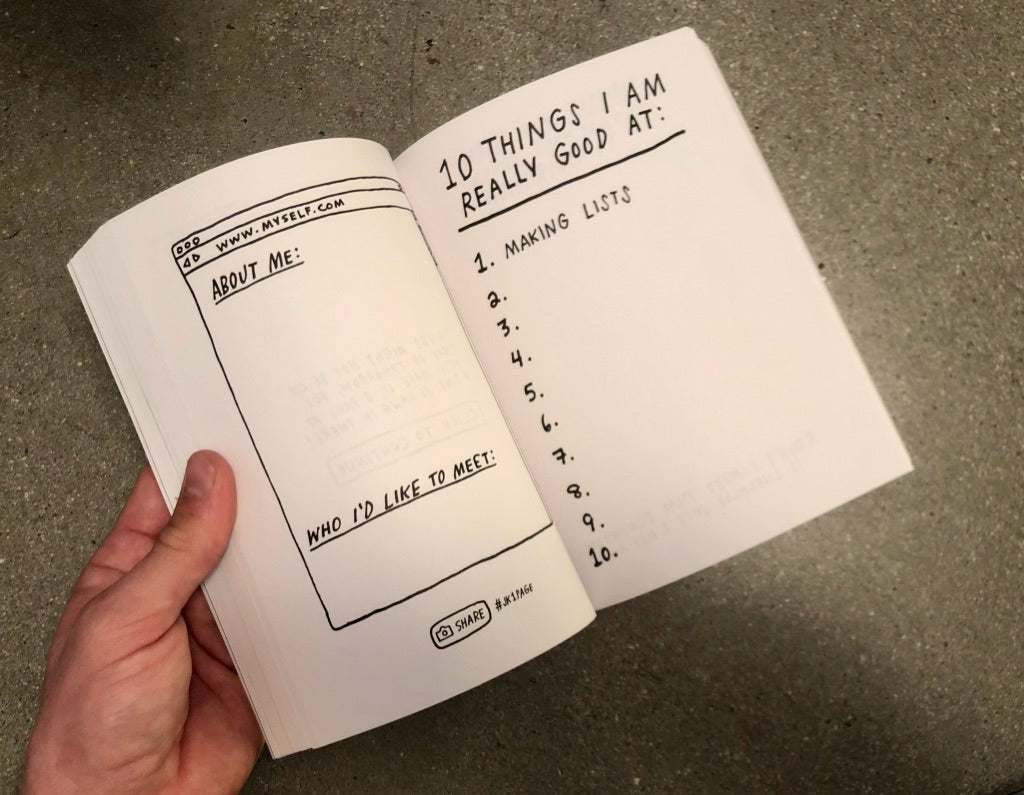 WWW.MYSELF.COM
ABOUT ME:
WHO I'D LIKE TO MEET:
SHARE #JK1PAGE
10 THINGS I AM
REALLY GOOD AT:
1. MAKING LISTS
2.
3.
4.
5.
6.
7.
8.
9.
10.